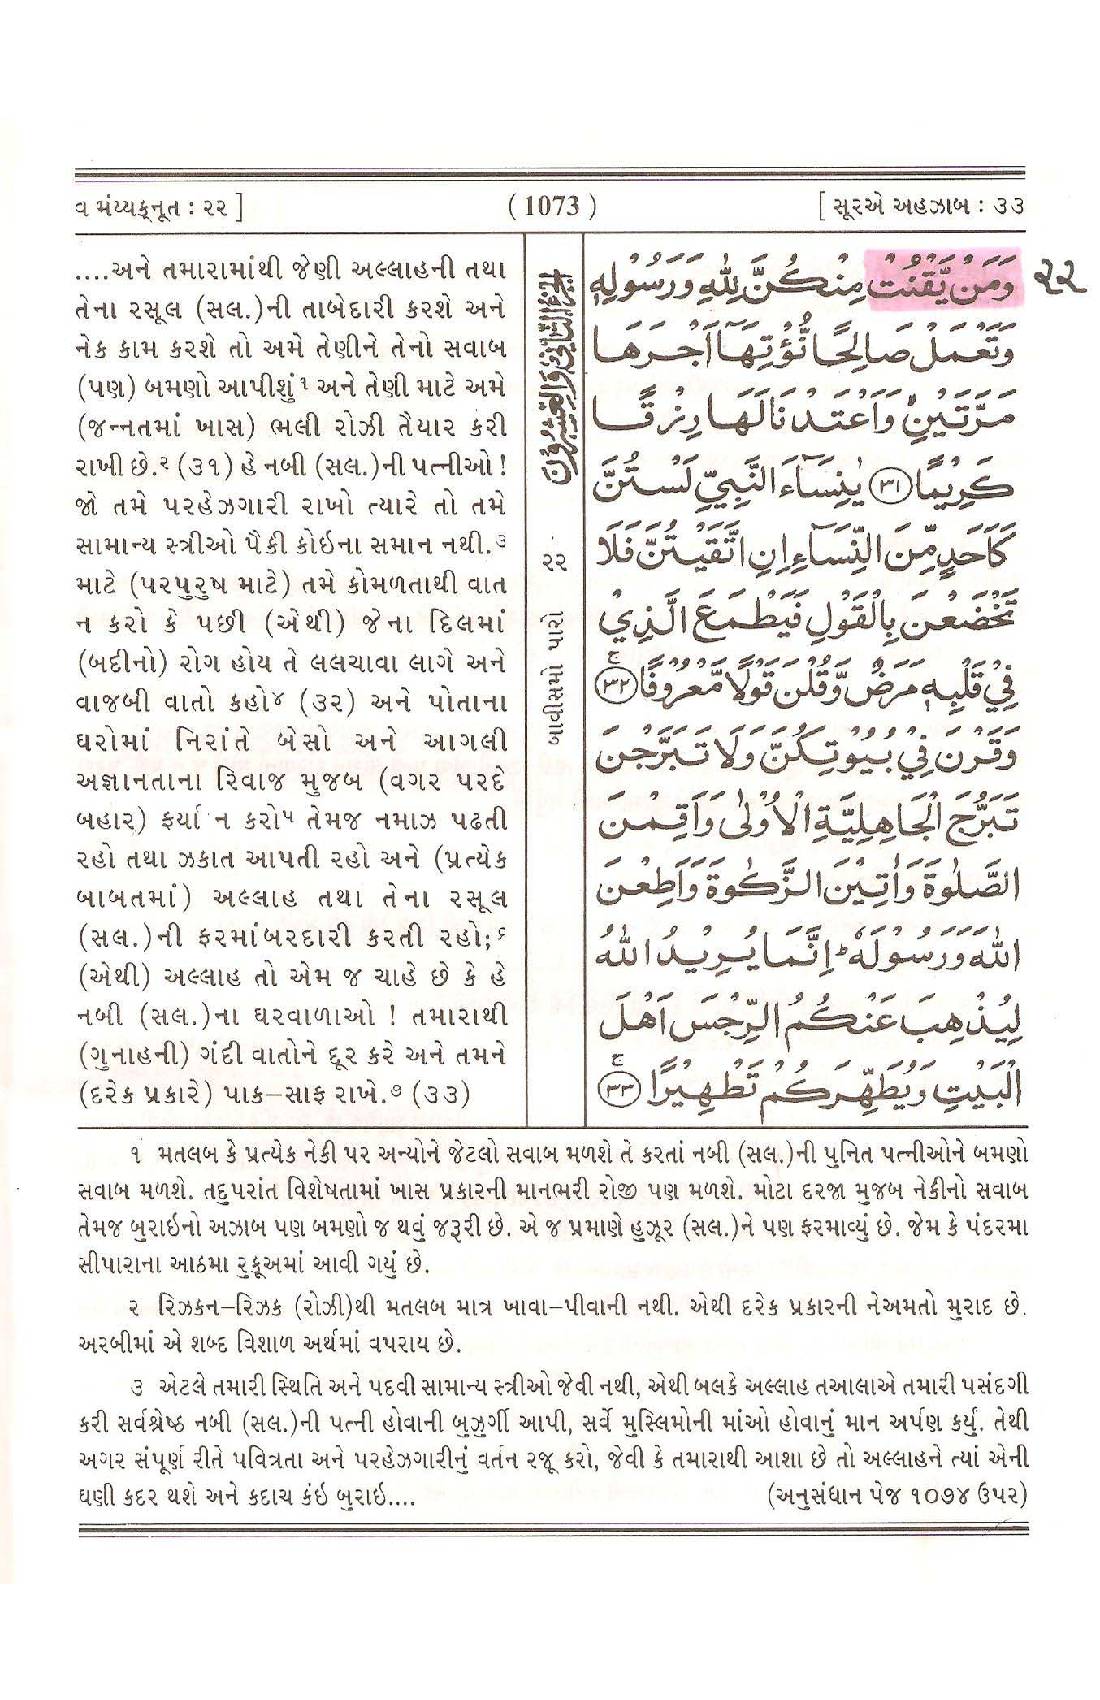 વ મંય્યક્નૂત : ૨૨ ]
( 1073 )
[ સૂરએ અહઝાબ : ૩૩
....અને તમારામાંથી જેણી અલ્લાહની તથા
તેના રસૂલ (સલ.)ની તાબેદારી કરશે અને
નેક કામ કરશે તો અમે તેણીને તેનો સવાબ
(પણ) બમણો આપીશું૧ અને તેણી માટે અમે
(જન્નતમાં ખાસ) ભલી રોઝી તૈયાર કરી
રાખી છે.૨ (૩૧) હે નબી (સલ.)ની પત્નીઓ !
જો તમે પરહેઝગારી રાખો ત્યારે તો તમે
સામાન્ય સ્ત્રીઓ પૈકી કોઇના સમાન નથી.૩
માટે (પરપુરુષ માટે) તમે કોમળતાથી વાત
ન કરો કે પછી (એથી) જેના દિલમાં
(બદીનો) રોગ હોય તે લલચાવા લાગે અને
વાજબી વાતો કહો૪ (૩૨) અને પોતાના
ઘરોમાં નિરાંતે બેસો અને આગલી
અજ્ઞાનતાના રિવાજ મુજબ (વગર પરદે
બહાર) ફર્યા ન કરો૫ તેમજ નમાઝ પઢતી
રહો તથા ઝકાત આપતી રહો અને (પ્રત્યેક
બાબતમાં) અલ્લાહ તથા તેના રસૂલ
(સલ.)ની ફરમાંબરદારી કરતી રહો;૬
(એથી) અલ્લાહ તો એમ જ ચાહે છે કે હે
નબી (સલ.)ના ઘરવાળાઓ ! તમારાથી
(ગુનાહની) ગંદી વાતોને દૂર કરે અને તમને
(દરેક પ્રકારે) પાક–સાફ રાખે.૭ (૩૩)
الجزء الثاني والعشرون
૨૨
બાવીસમો પારો
وَمَنْ يَّقْنُتْ مِنْكُنَّ لِلّٰهِ وَرَسُوْلِهٖ
૨૨
وَتَعْمَلْ صَالِحًا نُّؤْتِهَاۤ اَجْرَهَا
مَرَّتَيْنِۙ وَاَعْتَدْنَا لَهَا رِزْقًا
كَرِيْمًا ﴿٣١﴾ يٰنِسَآءَ النَّبِيِّ لَسْتُنَّ
كَاَحَدٍ مِّنَ النِّسَآءِ اِنِ اتَّقَيْتُنَّ فَلَا
تَخْضَعْنَ بِالْقَوْلِ فَيَطْمَعَ الَّذِيْ
فِيْ قَلْبِهٖ مَرَضٌ وَّقُلْنَ قَوْلًا مَّعْرُوْفًا ۚ﴿٣٢﴾
وَقَرْنَ فِيْ بُيُوْتِكُنَّ وَلَا تَبَرَّجْنَ
تَبَرُّجَ الْجَاهِلِيَّةِ الْاُوْلٰى وَاَقِمْنَ
الصَّلٰوةَ وَاٰتِيْنَ الزَّكٰوةَ وَاَطِعْنَ
اللّٰهَ وَرَسُوْلَهٗ ؕ اِنَّمَا يُرِيْدُ اللّٰهُ
لِيُذْهِبَ عَنْكُمُ الرِّجْسَ اَهْلَ
الْبَيْتِ وَيُطَهِّرَكُمْ تَطْهِيْرًا ۚ﴿٣٣﴾
૧ મતલબ કે પ્રત્યેક નેકી પર અન્યોને જેટલો સવાબ મળશે તે કરતાં નબી (સલ.)ની પુનિત પત્નીઓને બમણો
સવાબ મળશે. તદુપરાંત વિશેષતામાં ખાસ પ્રકારની માનભરી રોજી પણ મળશે. મોટા દરજા મુજબ નેકીનો સવાબ
તેમજ બુરાઇનો અઝાબ પણ બમણો જ થવું જરૂરી છે. એ જ પ્રમાણે હુઝૂર (સલ.)ને પણ ફરમાવ્યું છે. જેમ કે પંદરમા
સીપારાના આઠમા રુકૂઅમાં આવી ગયું છે.
૨ રિઝકન–રિઝક (રોઝી)થી મતલબ માત્ર ખાવા–પીવાની નથી. એથી દરેક પ્રકારની નેઅમતો મુરાદ છે.
અરબીમાં એ શબ્દ વિશાળ અર્થમાં વપરાય છે.
૩ એટલે તમારી સ્થિતિ અને પદવી સામાન્ય સ્ત્રીઓ જેવી નથી, એથી બલકે અલ્લાહ તઆલાએ તમારી પસંદગી
કરી સર્વશ્રેષ્ઠ નબી (સલ.)ની પત્ની હોવાની બુઝુર્ગી આપી, સર્વે મુસ્લિમોની માંઓ હોવાનું માન અર્પણ કર્યું. તેથી
અગર સંપૂર્ણ રીતે પવિત્રતા અને પરહેઝગારીનું વર્તન રજૂ કરો, જેવી કે તમારાથી આશા છે તો અલ્લાહને ત્યાં એની
ઘણી કદર થશે અને કદાચ કંઇ બુરાઇ.... (અનુસંધાન પેજ ૧૦૭૪ ઉપર)